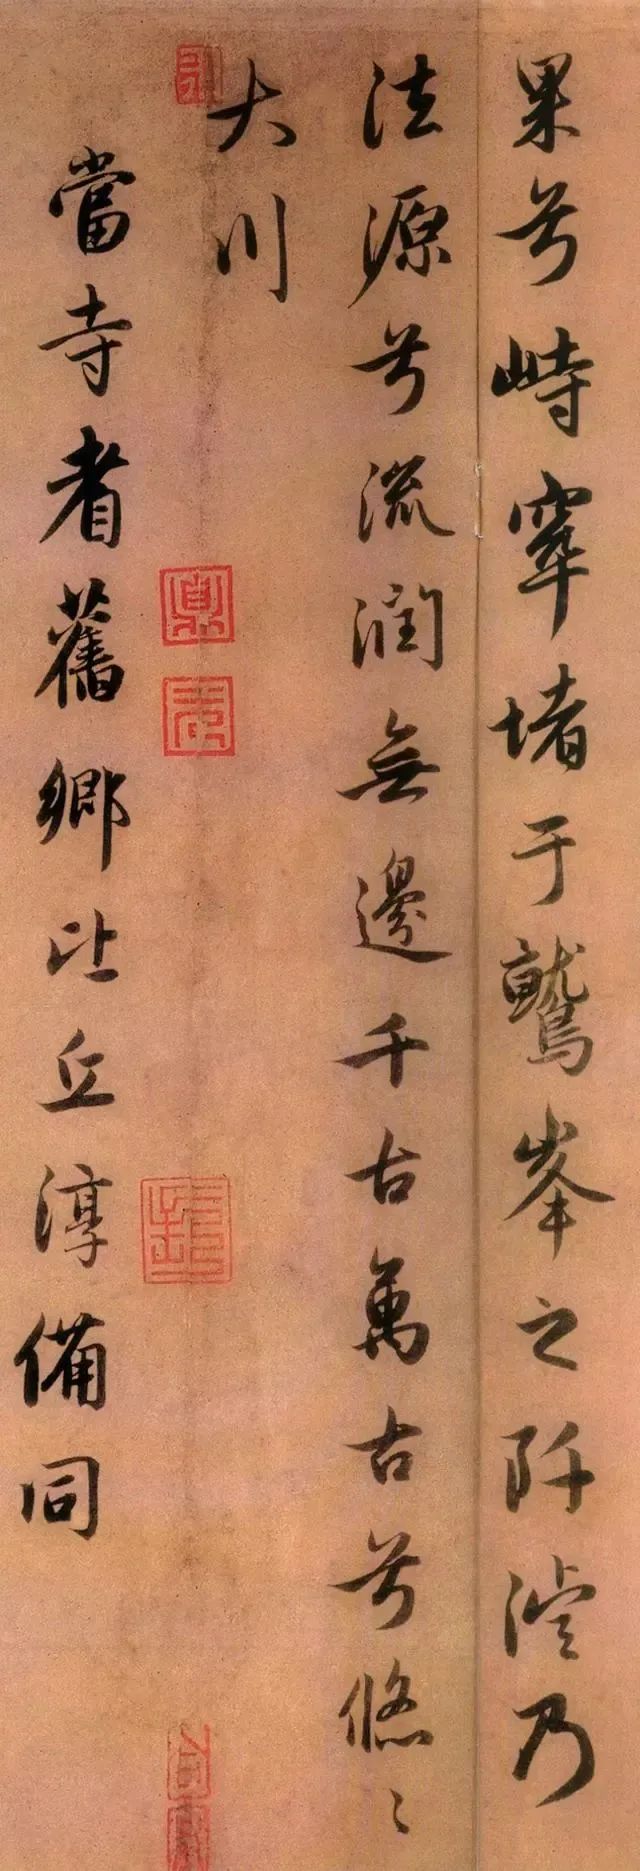 果兮峙窣堵于鷲峯之阡濬乃
法源兮流潤無邊千古萬古兮悠〻
大川
當寺耆舊鄉比丘淳備同